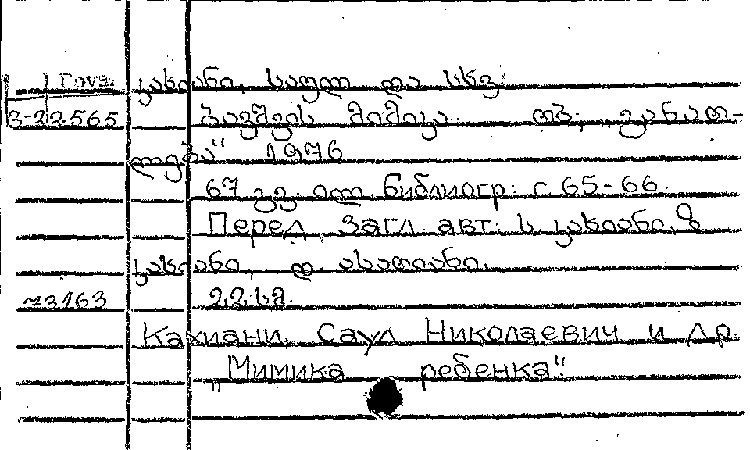 კახიანი, საულ და სხვ.
3-22565 ბავშვის მიმიკა თბ., „განათ-
ლება“ 1976
67 გვ. ილ. Библиогр: с 65-66.
Перед Загл. авт: ს. კახიანი, ზ
კახიანი, დ. ასათიანი.
73163 22.
Кахиани, Саул Николаевич и др.
„Мимика ребенка“.